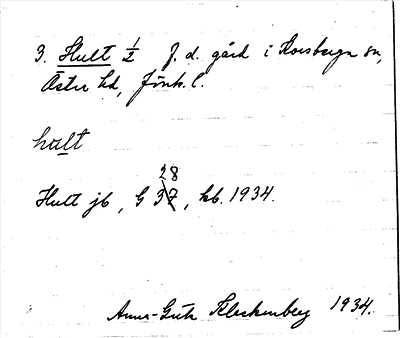 3. Hult ½ f. d. gård i Korsberga sn,
Östra hd, Jönk. l.
hult
28
Hult jb, G 37, kb. 1934.
Anna-Greta Kleckenberg 1934.